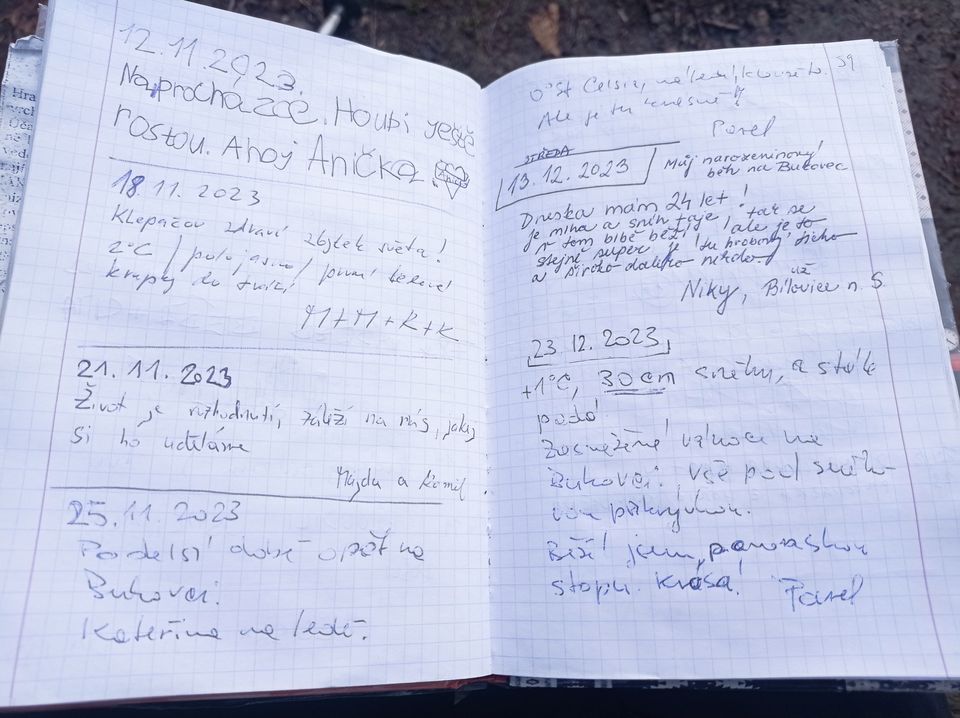 12.11.2023.
Na procházce. Houbi ještě
rostou. Ahoj Anička
18.11.2023
Klepačov zdraví zbytek světa!
2°C / polojasno / první ledové
krupky do tváří
M+M+K+K
21.11.2023
Život je rozhodnutí, záleží na nás, jaký
si ho uděláme
Majda a Kamil
25.11.2023
Po delší době opět na
Bukovci.
Kateřina na ledě.
39
0°st Celsia, na ledu klouzeto.
Ale je tu krásně!
Pavel
STŘEDA
13.12.2023 Můj narozeninový
běh na Bukovec
Dneska mám 24 let!
Je mlha a sníh taje, tak se
v tom blbě běží, ale je to
stejně super, je tu hrobový ticho
a široko daleko nikdo!
Niky, už Bílovice n. S.
23.12.2023
+1°C, 30cm sněhu, a stále
padá.
Zasněžené vánoce na
Bukovci. vše pod sněho-
vou přikrývkou.
Běžel jsem, panovaskou
stopu. krása! Pavel